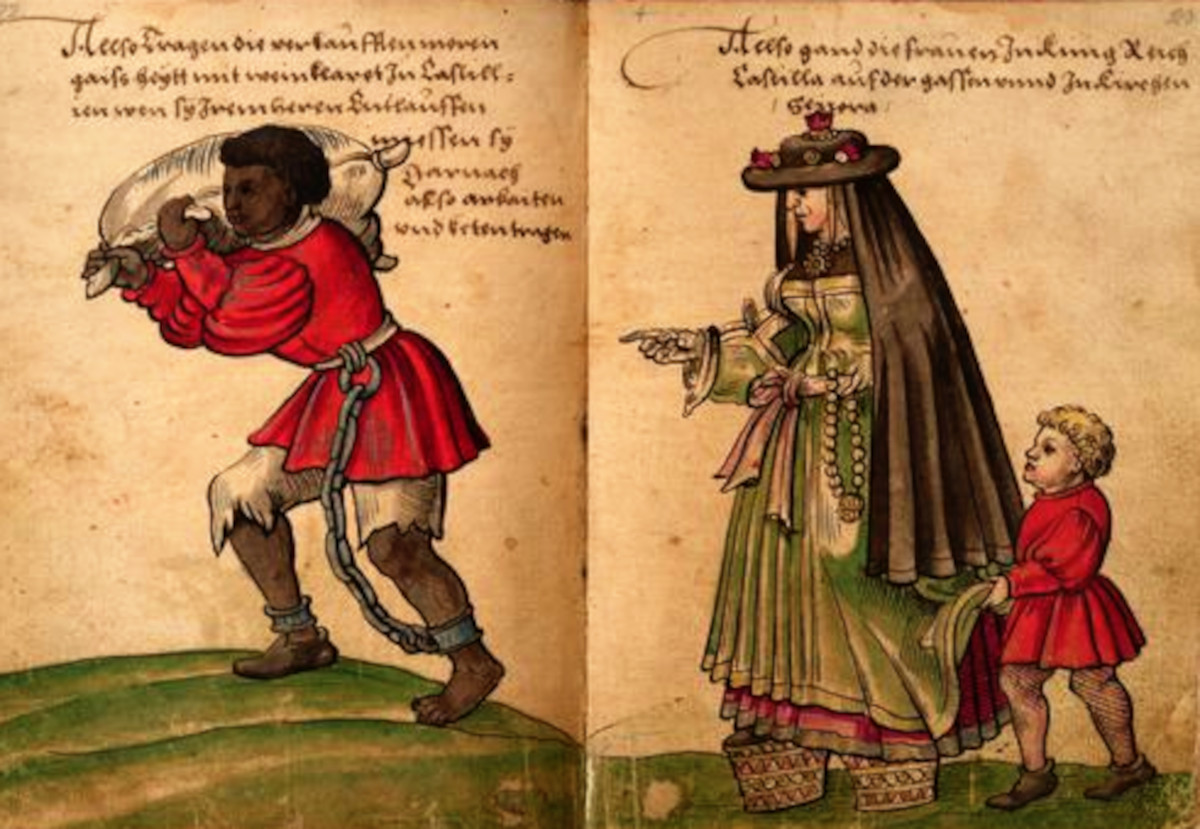 Allso tragen die verkaufften moren
gaiss heytt mit wein klaret In Castill=
ien wen sy Iren heren Entlauffen
messen sy
Darnach
also arbaiten
und ketten tragen
Allso gand die frauen In kung Reich
Castilla auf der gassen unnd In kirchen